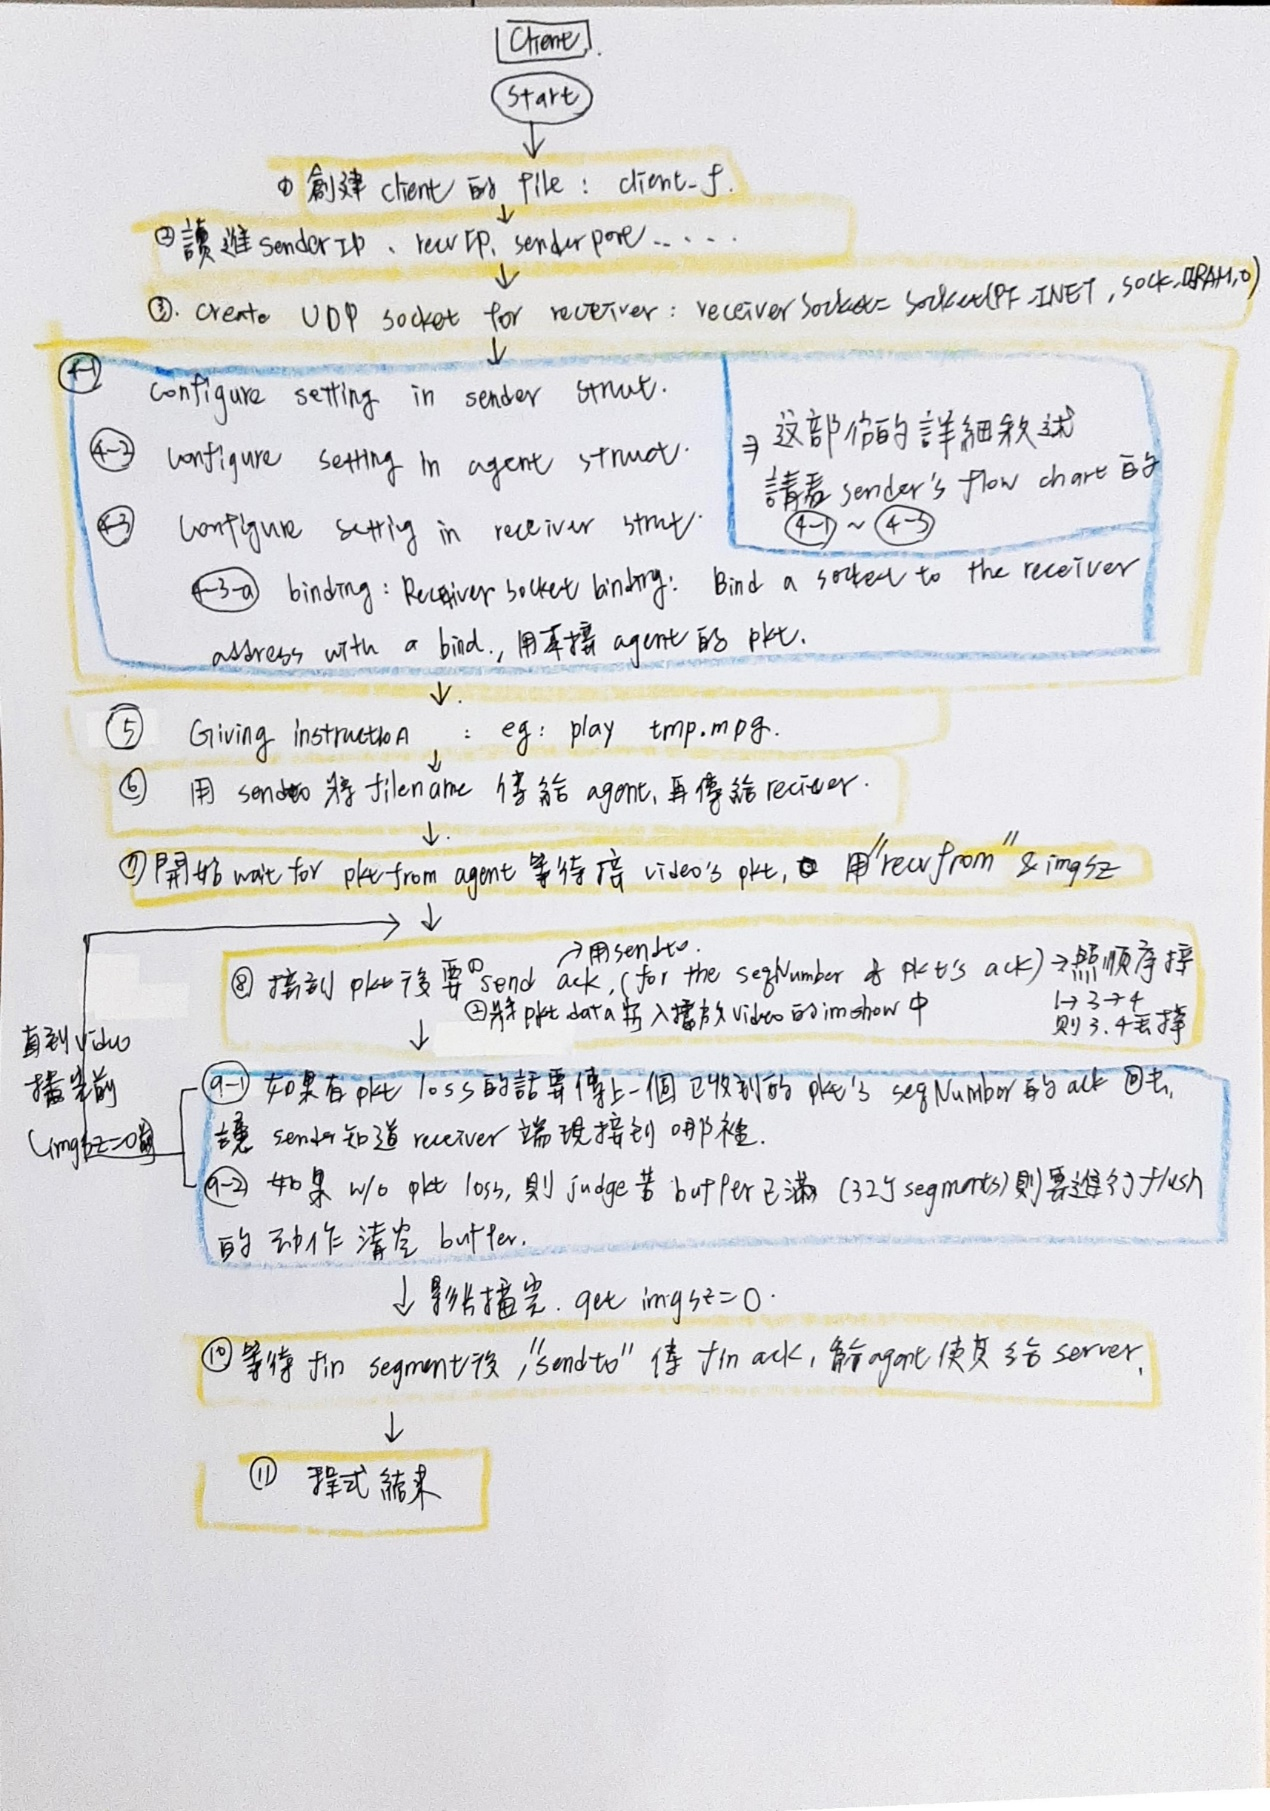 Client
Start
① 創建 client 的 file : client_f.
② 讀進 sender IP 、 recv IP、 sender port ......
③. create UDP socket for receiver : receiver socket = socket(PF_INET , SOCK_DGRAM, 0)
4-1 configure setting in sender strut.
4-2 configure setting in agent struct.
4-3 configure settig in receiver strut.
⇒ 这部份的詳細敘述
請看 sender's flow chart 的
4-1 ~ 4-3
4-3-a binding : Receiver socket binding: Bind a socket to the receiver
address with a bind., 用來接 agent 的 pkt.
⑤ Giving instruction : eg: play tmp.mpg.
⑥ 用 sendto 將 filename 傳給 agent, 再傳給 reciever.
⑦ 開始 wait for pkt from agent 等待接 video's pkt, 用 "recvfrom" & imgsz
→ 用 sendto.
⑧ 接到 pkt 後要 ① send ack, (for the seqNumber of pkt's ack) → 照順序接
② 將 pkt data 寫入播放 video 的 imshow 中
1→3→4
則 3.4 丟掉
直到 video
播完前
(imgsz=0前)
9-1 如果有 pkt loss 的話要傳上一個已收到的 pkt's seqNumber 的 ack 回去,
讓 sender 知道 receiver 端現接到哪裡.
9-2 如果 w/o pkt loss, 則 judge 若 buffer 已滿 (32个 segments) 則要進行 flush
的动作清空 buffer.
↓ 影片播完. get imgsz=0.
⑩ 等待 fin segment 後, "sendto" 傳 fin ack, 給 agent 使其給 server.
⑪ 程式結束